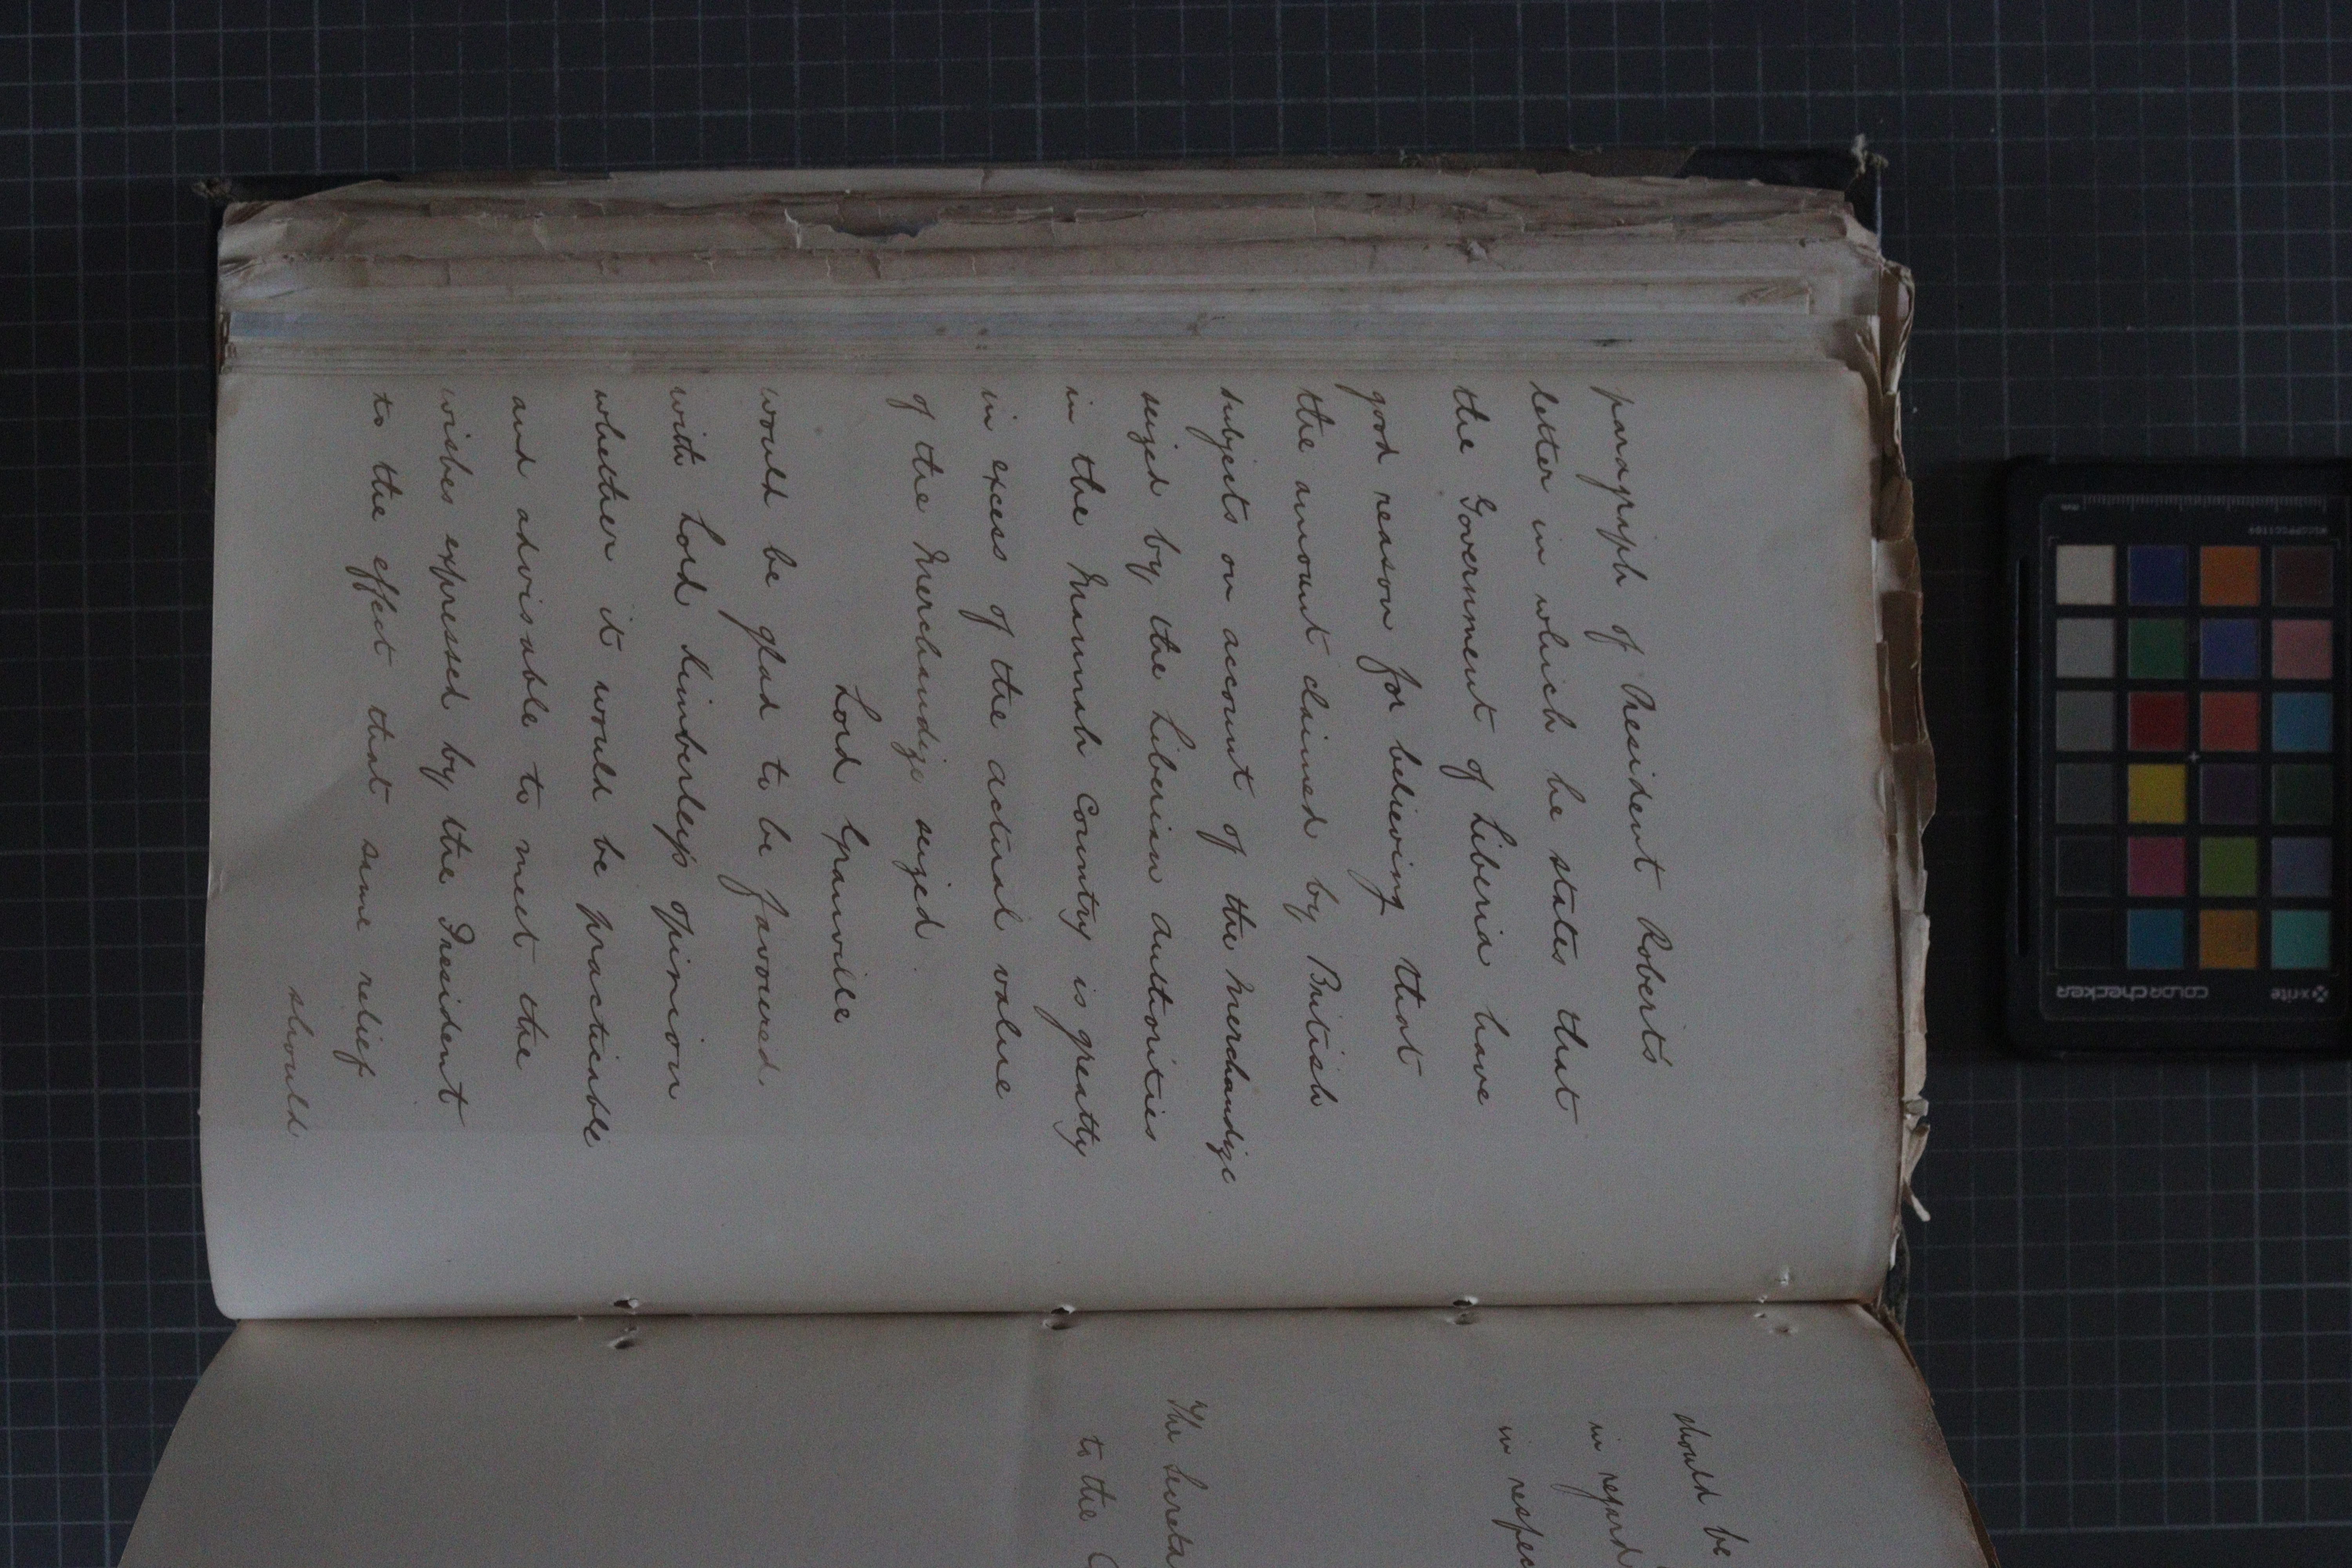 paragraph of President Roberts'
letter in which he states that
the Government of Liberia have
good reason for believing that
the amount claimed by British
subjects on account of the Merchandize
seized by the Liberian Authorities
in the Mannah Country is greatly
in excess of the actual value
of the Merchandize seized.
Lord Granville
would be glad to be favoured
with Lord Kimberley's opinion
whether it would be practicable
and advisable to meet the
wishes expressed by the President
to the effect that some relief
should
should be
in regard
in respec
The Secreta
to the C
x-rite
colorchecker